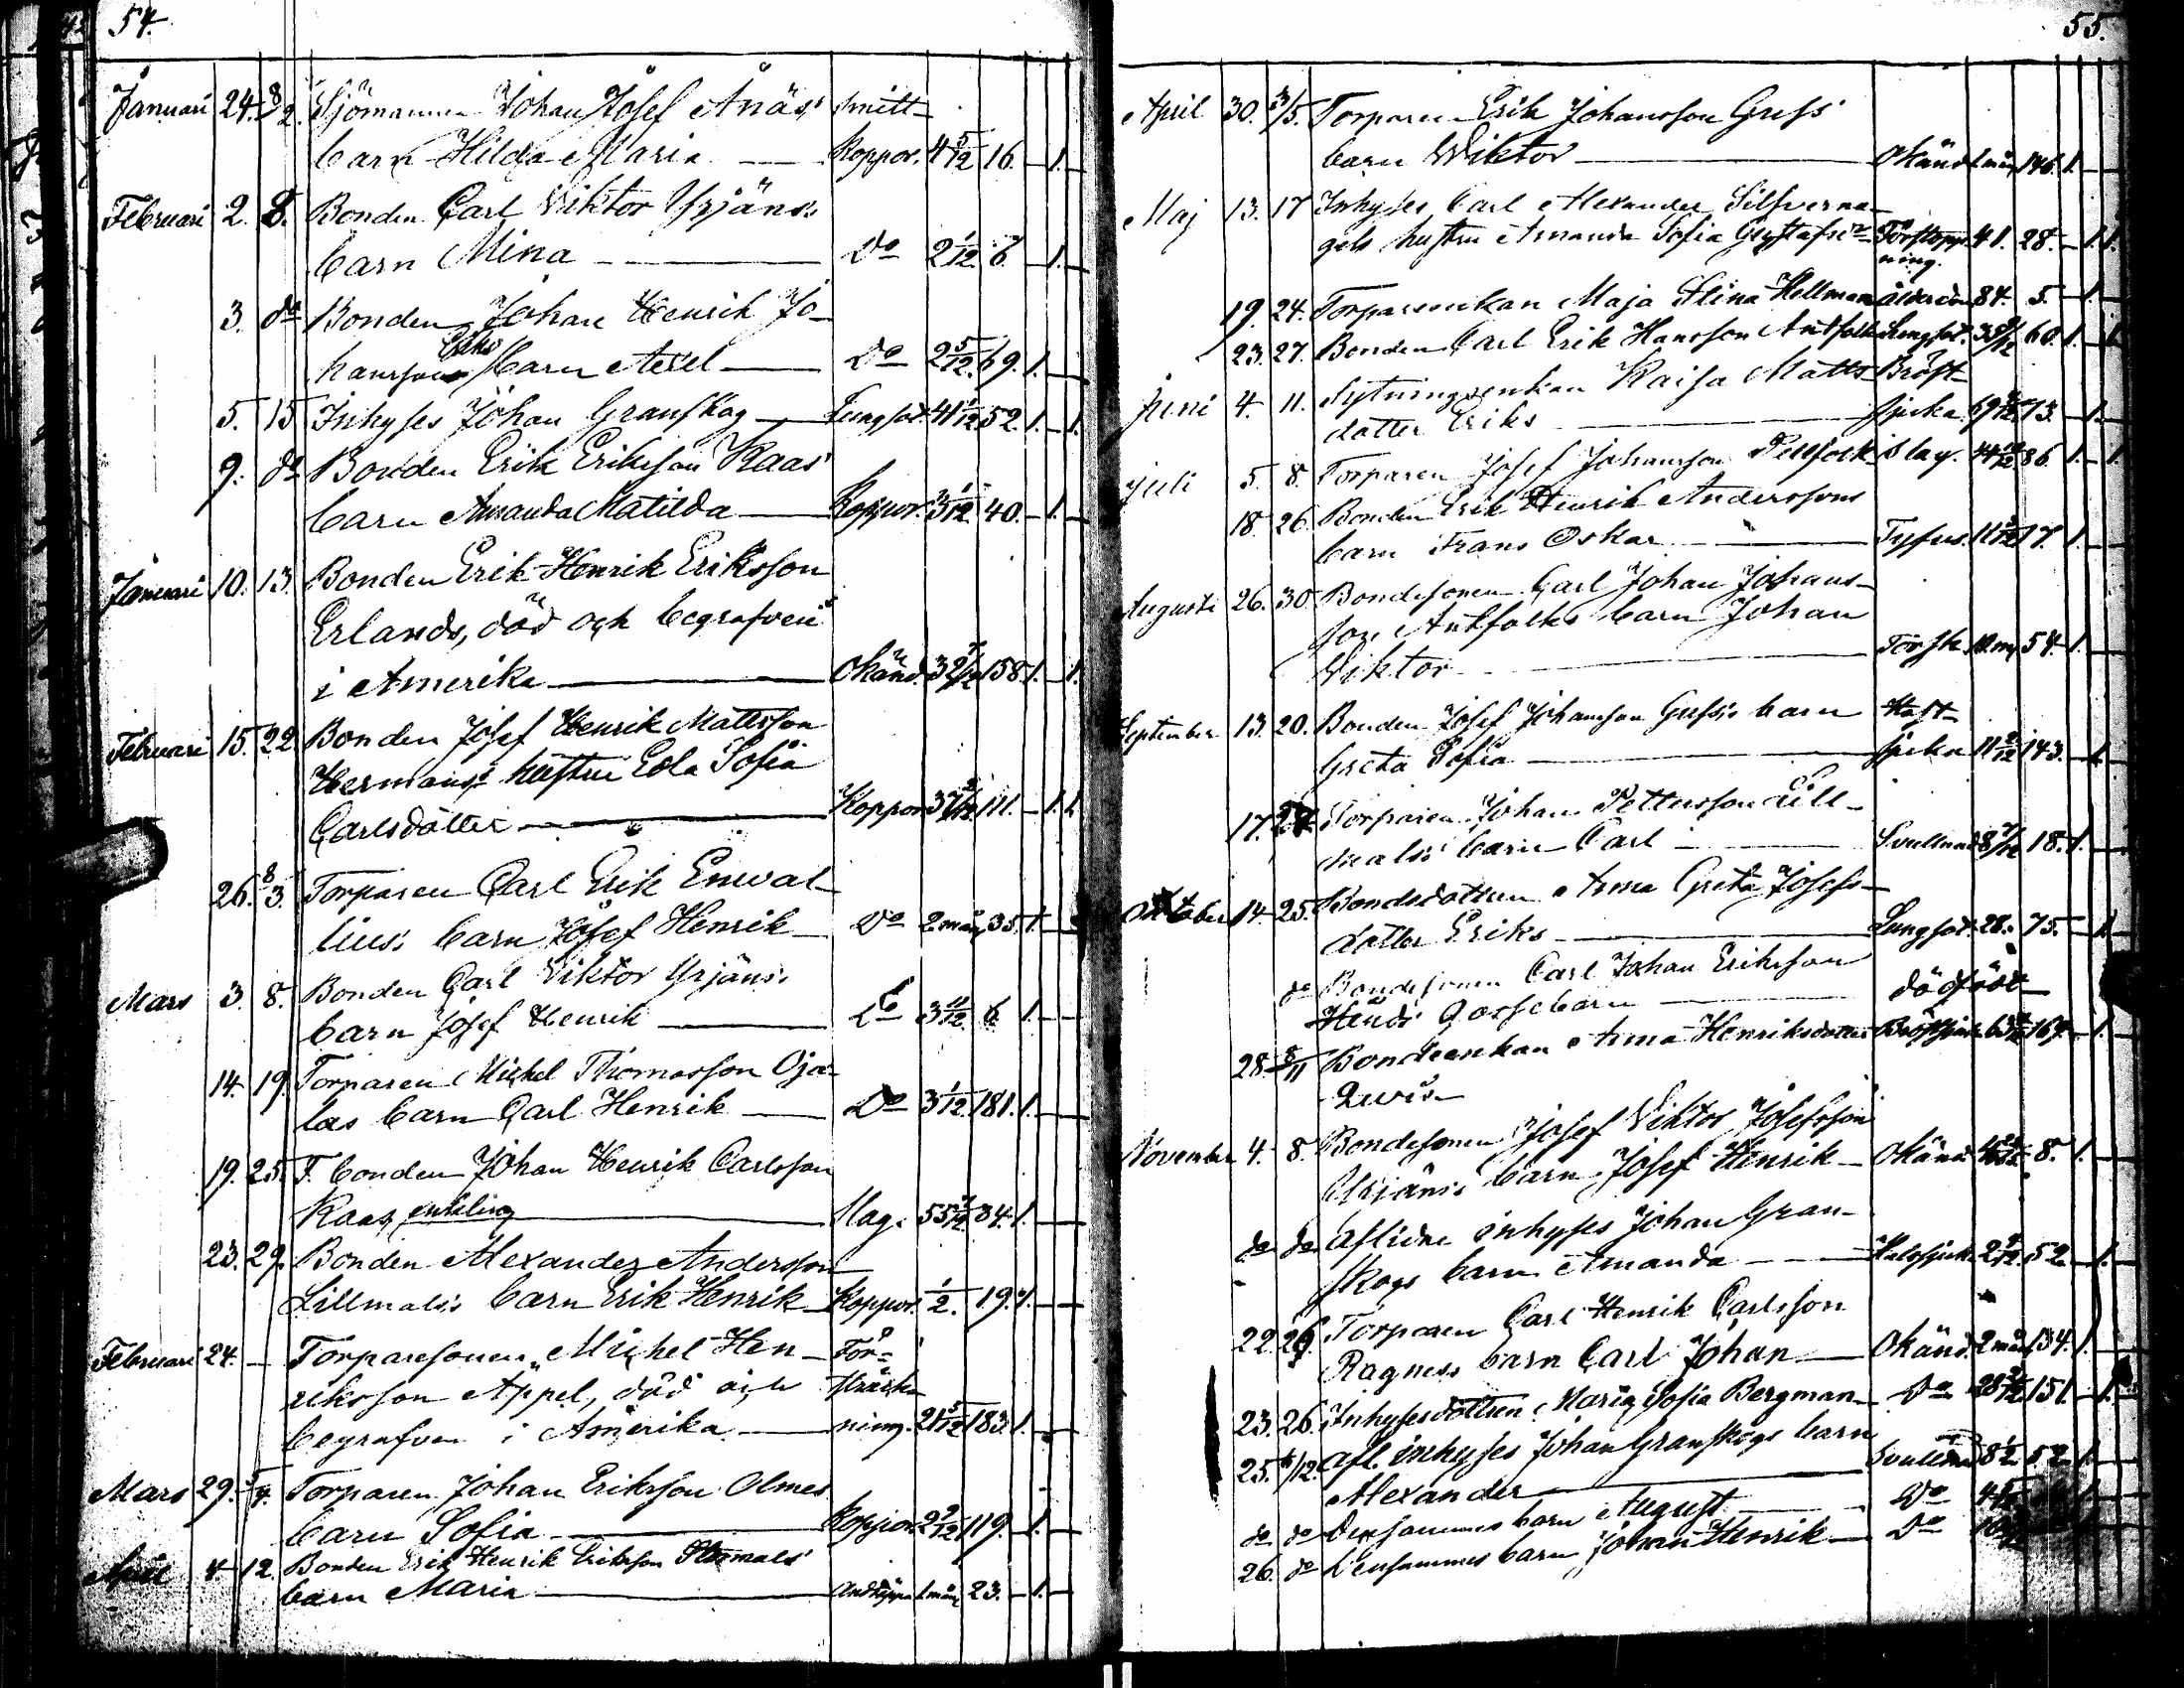 54.
Januari 24. 8/2. Sjömannen Johan Josef Anäs' smitt-
barn Hilda Maria — Koppor. 4 5/12 16. — 1. —
Februari 2. 8. Bonden Carl Viktor Yrjäns:
barn Mina — Do 2 1/12 6. — 1. —
3. do Bonden Johan Henrik Jo-
hansson Eriks barn Axel — Do 2 5/12 69. 1. —
5. 15 Inhyses Johan Granskog — Lungsot. 41 1/12 52. 1. — 1.
9. do Bonden Erik Eriksson Kaas'
barn Amanda Matilda — Koppor. 3 1/12 40. — 1. —
Januari 10. 13. Bonden Erik Henrik Eriksson
Erlands, död och begrafven
i Amerika — Okänd. 32 7/12 158. 1. — 1.
Februari 15. 22. Bonden Josef Henrik Mattsson
Hermans: hustru Eva Sofia
Carlsdotter — Koppor 37 3/12 111. — 1. 1.
26. 8/3. Torparen Carl Erik Enwal-
lius: barn Josef Henrik — Do 2 mån 35. 1. —
Mars 3. 8. Bonden Carl Viktor Yrjäns:
barn Josef Henrik — Do 3 11/12 6 1. —
14. 19. Torparen Michel Thomasson Oja-
las barn Carl Henrik — Do 3 1/12 181. 1. —
19. 25. F. bonden Johan Henrik Carlsson
Kaas, enkling — Slag. 55 7/12 34. 1. —
23. 29. Bonden Alexander Andersson
Lillmals: barn Erik Henrik — Koppor. 1/2. 19. 1. —
Februari 24. — Torparesonen Michel Hen- För-
riksson Appel, död och sträck-
begrafven i Amerika. — ning. 21 5/12 183. 1. —
Mars 29. 5/4. Torparen Johan Eriksson Olmes
barn Sofia — Koppor 2 9/12 119. — 1. —
April 4. 12. Bonden Erik Henrik Eriksson
barn Maria — Andtäppa 1 mån 23. — 1. —
55.
April 30. 3/5. Torparen Erik Johansson Guss'
barn Wiktor — Okänd 1 mån 146. 1. —
Maj 13. 17 Inhyses Carl Alexander Silfverna-
gels hustru Amanda Sofia Gustafsdr Förstopp- 41. 28. — 1. 1.
ning.
19. 24. Torpareenkan Maja Stina Hellman ålderdom 84. 5. — 1. —
23. 27. Bonden Carl Erik Hansson Antfolk Lungsot. 60. 1. — 1.
Juni 4. 11. Sytningsenkan Kaisa Matts- Bröst-
dotter Eriks — sjuka 69 73. — 1.
Juli 5. 8. Torparen Josef Johansson slag. 44 86. 1. — 1.
18. 26. Bonden Erik Henrik Anderssons
barn Frans Oskar — Tyfus. 11 17. 1. —
Augusti 26. 30. Bondesonen Carl Johan Johans-
son Antfolks barn Johan
Viktor — Torsk 10 mån 54. 1. —
September 13. 20. Bonden Josef Johansson Guss: barn Hals-
Greta Sofia — sjuka 11 2/12 143. — 1.
17. 27. Torparen Johan Pettersson Lill-
mals: barn Carl — Svullnad 8 7/12 18. 1. —
Oktober 14. 25. Bondedottren Anna Greta Josefs-
dotter Eriks — Lungsot. 28. 75. — 1.
do Bondesonen Carl Johan Eriksson
Gossebarn — dödfödt
28. 8/11 Bondeenkan Anna Henriksdotter Bröstsjuka 164. — 1.
November 4. 8. Bondesonen Josef Viktor Josefsson
Yrjäns: barn Josef Henrik — Okänd 8. 1. —
do do Aflidne inhyses Johan Gran-
skogs barn Amanda — Halssjuka 2 52. — 1. —
22. 26. Torparen Carl Henrik Carlsson
Ragness barn Carl Johan — Okänd. 2 mån 134. 1. —
23. 26. Inhysesdottren Maria Sofia Bergman — Do 28 151. — 1.
25. 6/12. Afl. inhyses Johan Granskogs barn
Alexander — Svullnad 8 1/2 52 1. —
do do Densammes barn August — Do
26. do Densammes barn Johan Henrik — Do